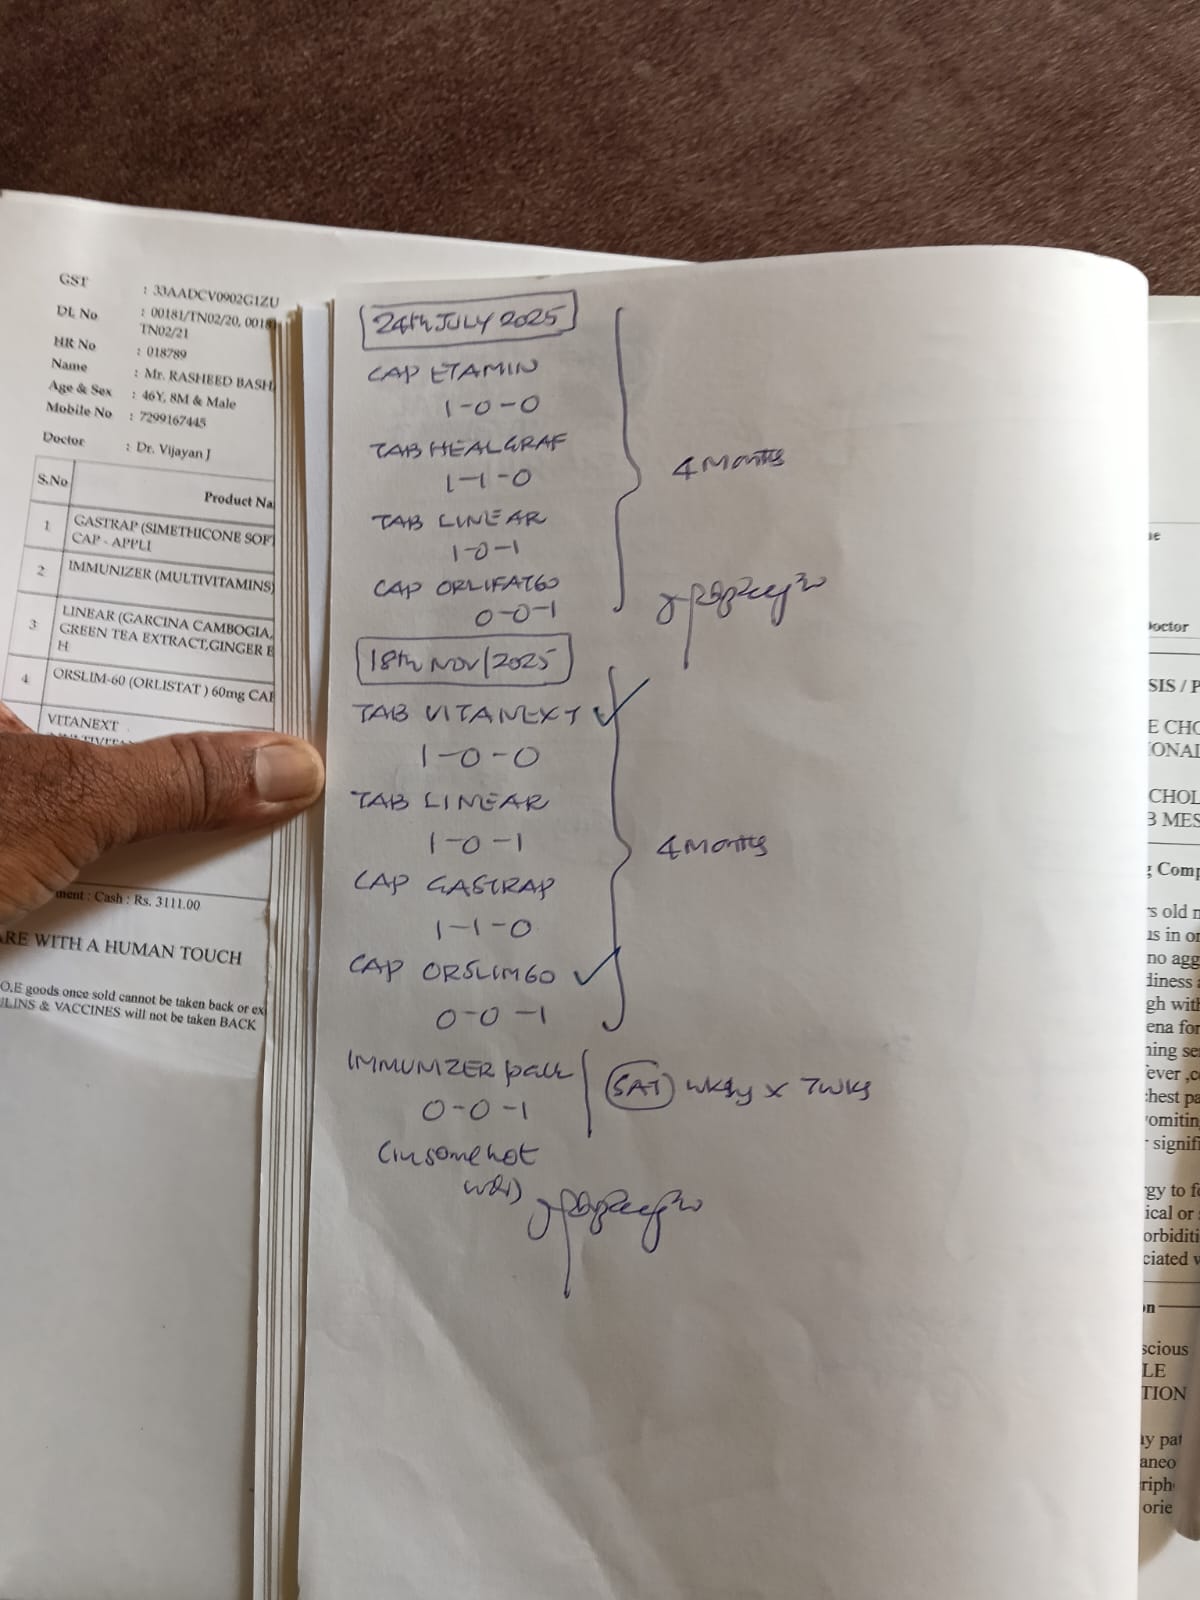 GST : 33AADCV0902G1ZU
DL No : 00181/TN02/20, 0018
TN02/21
HR No : 018789
Name : Mr. RASHEED BASH
Age & Sex : 46Y, 8M & Male
Mobile No : 7299167445
Doctor : Dr. Vijayan J
S.No Product Na
1 GASTRAP (SIMETHICONE SOF
CAP - APPLI
2 IMMUNIZER (MULTIVITAMINS)
3 LINEAR (GARCINA CAMBOGIA,
GREEN TEA EXTRACT,GINGER E
H
4 ORSLIM-60 (ORLISTAT ) 60mg CAP
VITANEXT
ment : Cash : Rs. 3111.00
ARE WITH A HUMAN TOUCH
O.E goods once sold cannot be taken back or ex
ULINS & VACCINES will not be taken BACK
24th JULY 2025
CAP ETAMIN
1-0-0
TAB HEALGRAF
1-1-0
TAB LINEAR
1-0-1
CAP ORLIFAT60
0-0-1
4 Months
18th NOV/2025
TAB VITANEXT ✓
1-0-0
TAB LINEAR
1-0-1
CAP GASTRAP
1-1-0
CAP ORSLIM60 ✓
0-0-1
4 Months
IMMUNIZER
0-0-1
SAT wkly x 7wks
(in some hot
ne
Doctor
SIS / P
E CHO
IONAL
CHOL
B MES
g Comp
rs old m
us in or
no agg
diness a
gh with
ena for
ning se
fever ,c
chest pa
vomiting
signifi
rgy to fo
ical or s
orbiditi
ciated v
on
scious
LE
TION
ay pat
aneo
riph
orie